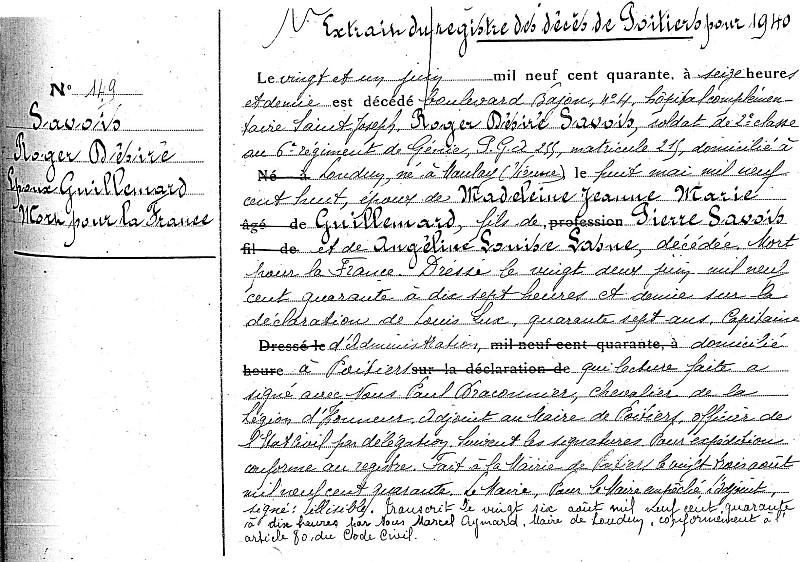 Extrait du registre des décès de Poitiers pour 1940
N° 149
Savois
Roger Désiré
Epoux Guillemard
Mort pour la France
Le vingt et un juin mil neuf cent quarante, à seize heures
et demie est décédé boulevard Bajon, n°4, hôpital complémen-
taire Saint Joseph, Roger Désiré Savois, soldat de 2e classe
au 6e régiment de Génie, P.G.2 255, matricule 215, domicilié à
Né à Loudun, né à Maulay (Vienne) le huit mai mil neuf
cent huit, époux de Madeleine Jeanne Marie
âgé de Guillemard, fils de profession Pierre Savois
fil de et de Angéline Louise Lasne, décédée. Mort
pour la France. Dressé le vingt deux juin mil neuf
cent quarante à dix sept heures et demie sur la
déclaration de Louis Lux, quarante sept ans, Capitaine
Dressé le d'Administration, mil neuf cent quarante, à domicilié
heure à Poitiers sur la déclaration de qui lecture faite a
signé avec Nous Paul Draconnier, chevalier de la
Légion d'Honneur, Adjoint au Maire de Poitiers, officier de
l'Etat Civil par délégation. Suivent les signatures. Pour expédition
conforme au registre. Fait à la Mairie de Poitiers le vingt trois août
mil neuf cent quarante. Le Maire, Pour le Maire empêché l'adjoint,
signé: illisible. Transcrit le vingt six août mil neuf cent quarante
à dix heures par Nous Marcel Aymard, Maire de Loudun, conformément à l'
article 80 du Code Civil.